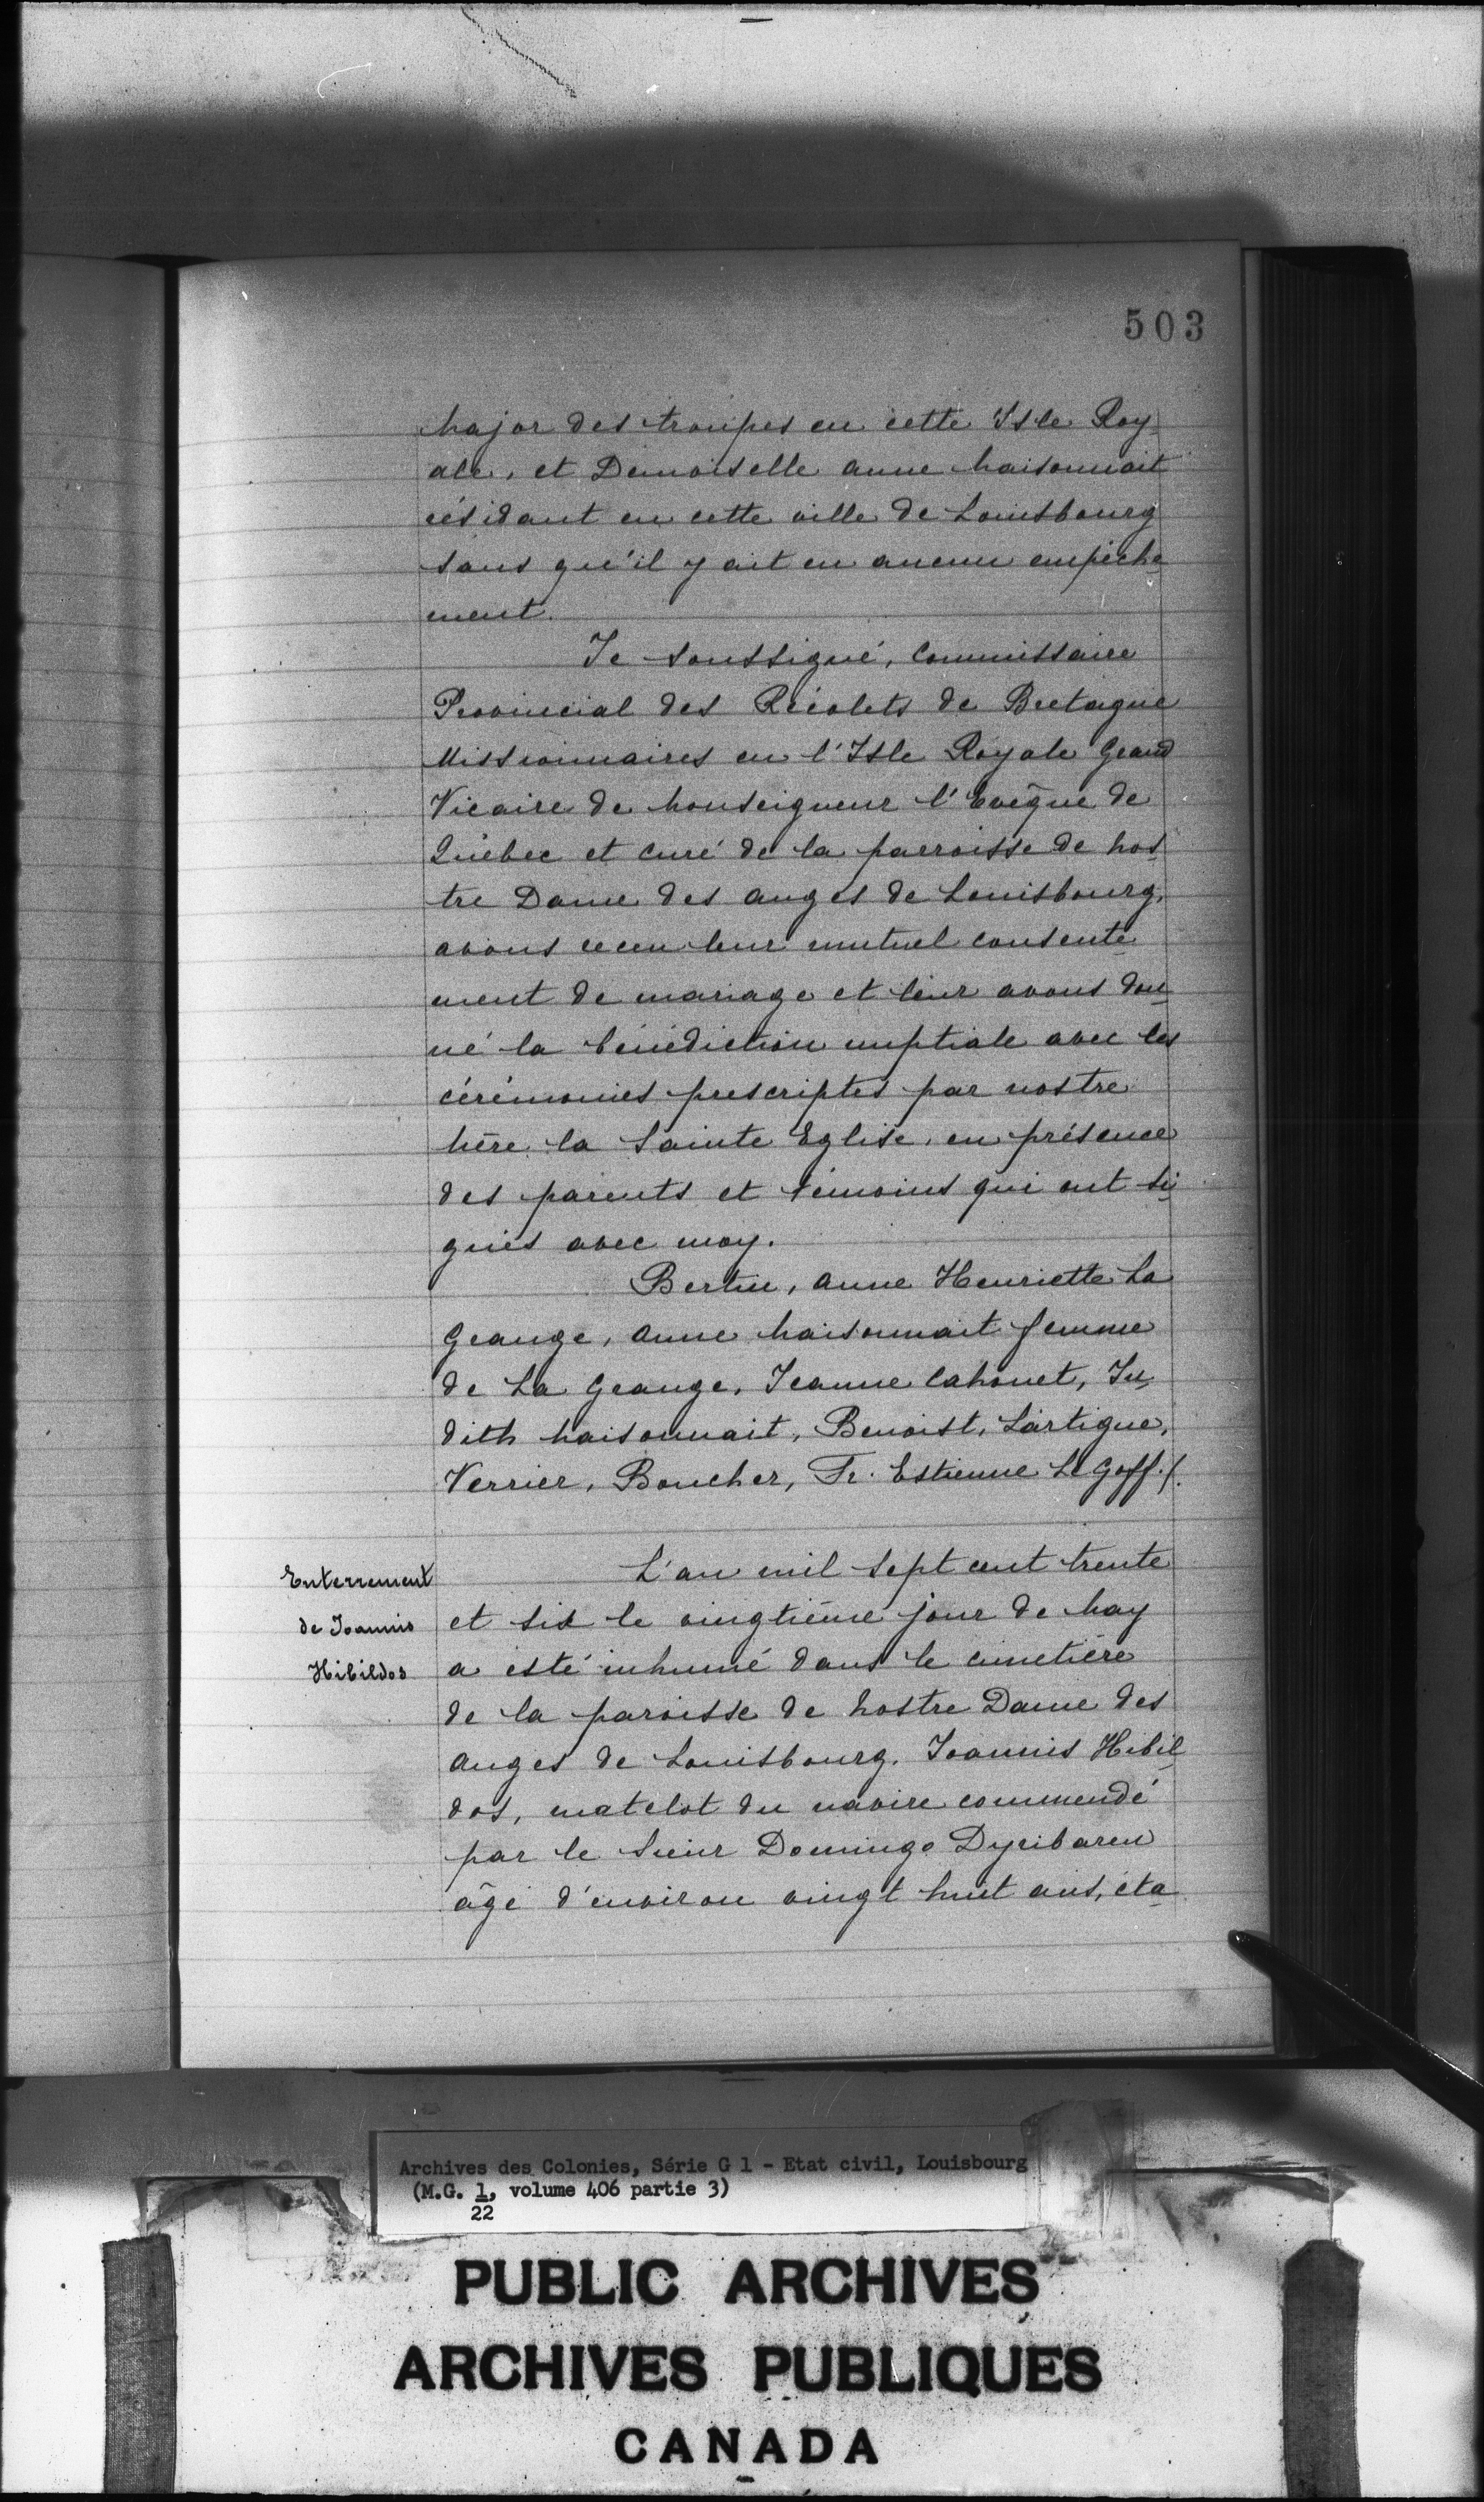 503
Major des troupes en cette Isle Roy-
ale, et Demoiselle anne Maisonnait
résidant en cette ville de Louisbourg
sans qu'il y ait eu aucun empêche
ment.
Je soussigné, Commissaire
Provincial des Récolets de Bretagne
Missionnaires en l'Isle Royale Grand
Vicaire de Monseigneur l'Evêque de
Québec et curé de la parroisse de Nos-
tre Dame des anges de Louisbourg,
avons receu leur mutuel consente-
ment de mariage et leur avons don-
né la bénédiction nuptiale avec les
cérémonies prescriptes par nostre
Mère la Sainte Eglise, en présence
des parents et témoins qui ont si-
gnés avec moy.
Bertin, anne Henriette La
Grange, anne Maisonnait femme
de La Grange, Jeanne Cahouet, Ju-
dith Maisonnait, Benoist, Lartigue,
Verrier, Boucher, Fr. Estienne Le Goff./.
Enterrement
de Joannis
Hibildos
L'an mil sept cent trente
et six le vingtième jour de May
a esté inhumé dans le cimetière
de la paroisse de Nostre Dame des
anges de Louisbourg. Joannis Hibil-
dos, matelot du navire commendé
par le Sieur Domingo Dyribaren
âgé d'environ vingt huit ans, éta-
Archives des Colonies, Série G 1 - Etat civil, Louisbourg
(M.G. 1, volume 406 partie 3)
22
PUBLIC ARCHIVES
ARCHIVES PUBLIQUES
CANADA